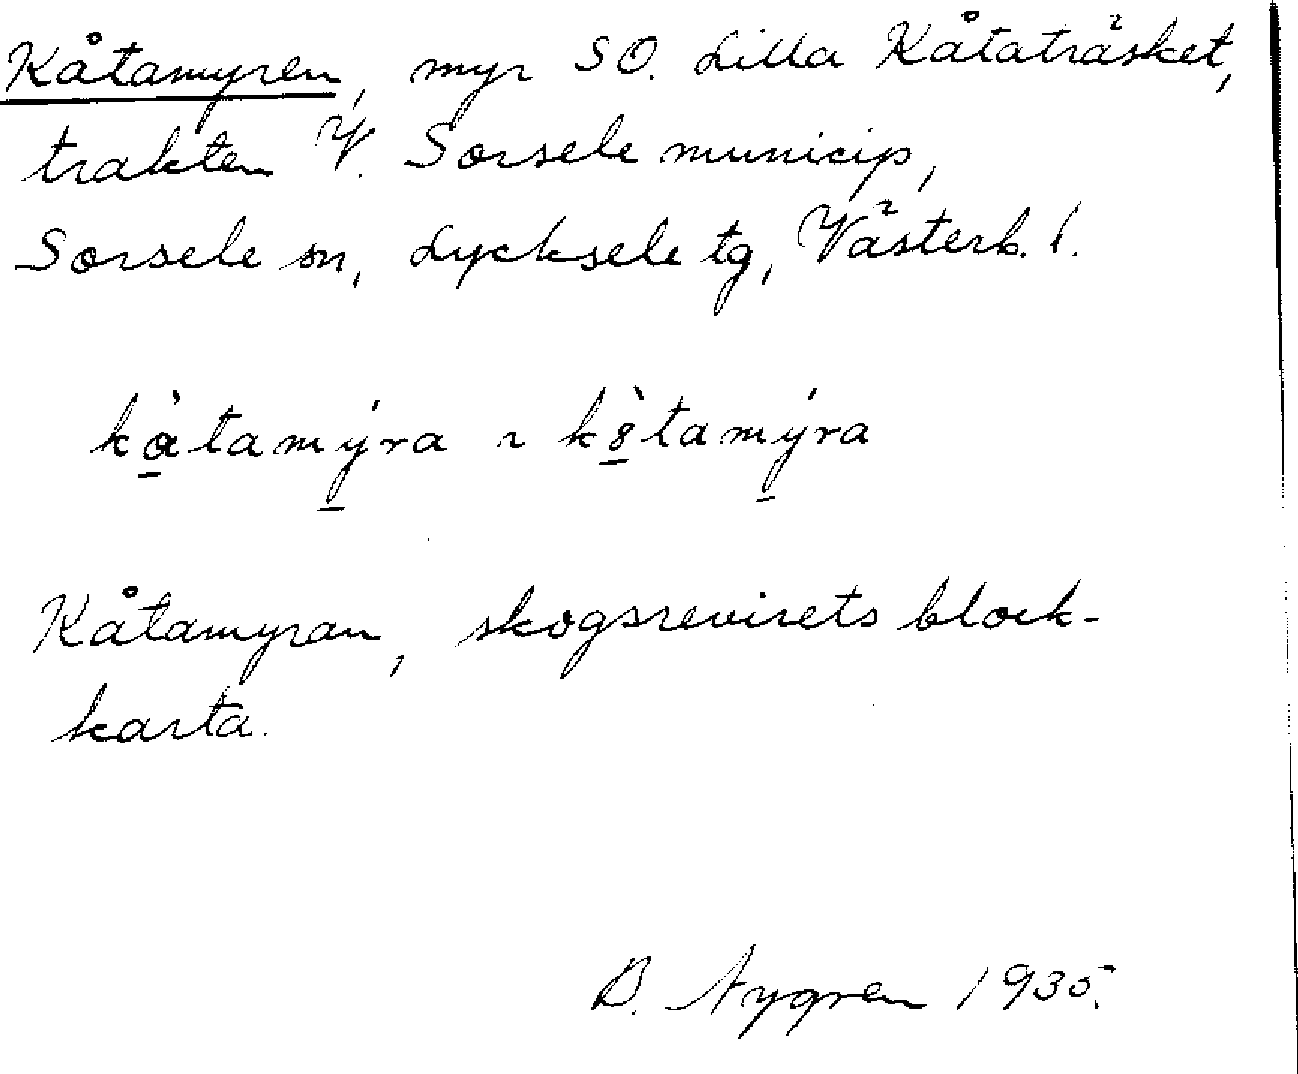 Kåtamyren, myr SO. Lilla Kåtaträsket,
trakten V. Sorsele municip,
Sorsele sn, Lycksele tg, Västerb. l.
kàtamýra ~ k8̀tamýra
Kåtamyran, skogsrevirets block-
karta.
B. Nygren 1935.